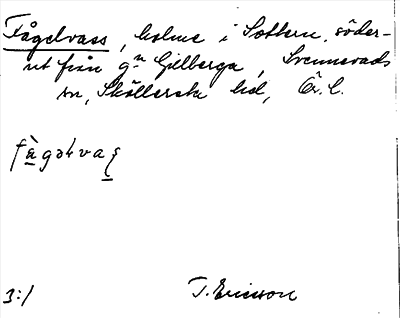 Fågelvass, holme i Sottern, söder-
ut från gn Gillberga, Svennevads
sn, Sköllersta hd, Ör. l.
fàgəɫvaʂ
3:/
T. Ericsson